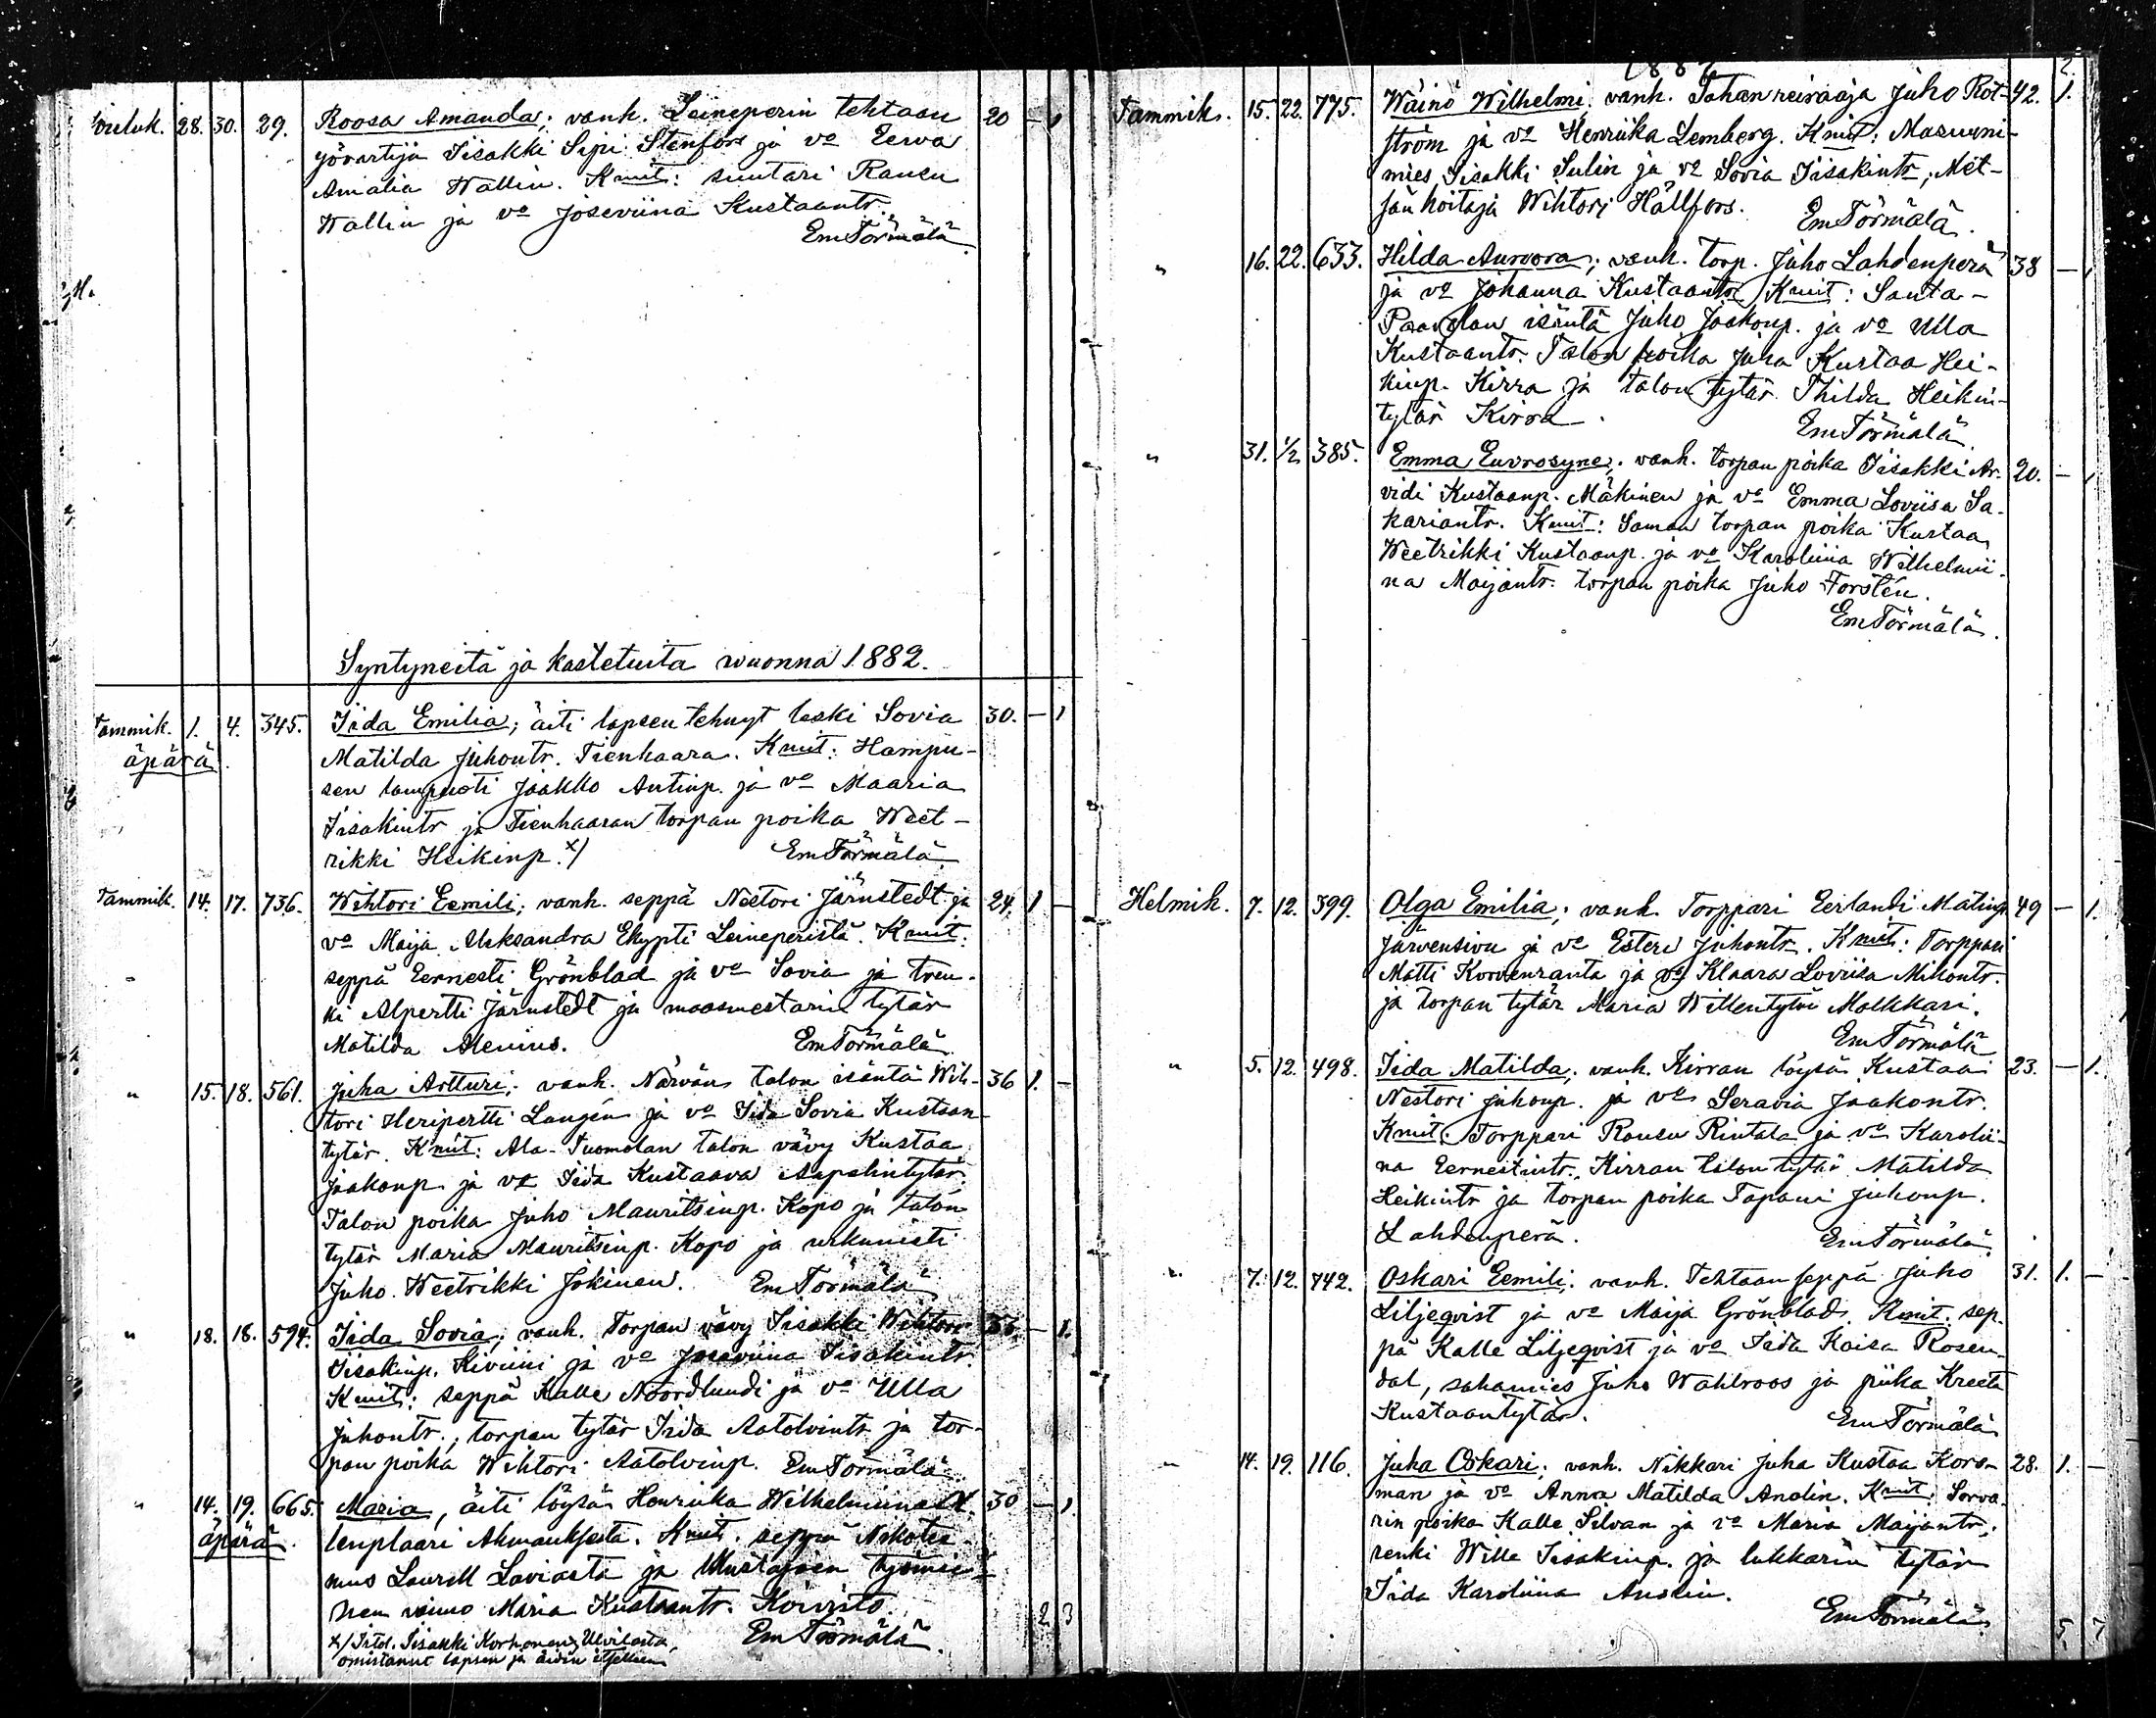 Jouluk. 28. 30. 29. Roosa Amanda; vanh. Leineperin tehtaan 20 — 1
yövartija Iisakki Sipi Stenfors ja vo Eewa
Amalia Wallin. Kmit: suutari Ransu
Wallin ja vo Joseviina Kustaantr.
Em Törmälä.
Syntyneitä ja kastetuita wuonna 1882.
Tammik. 1. 4. 345. Iida Emilia; äiti lapsen tehnyt leski Sovia 30. — 1
äpärä. Matilda Juhontr. Tienhaara. Kmit: Hampu-
sen lampuoti Jaakko Antinp. ja vo Maaria
Iisakintr ja Tienhaaran torpan poika Weet-
rikki Heikinp. x/ Em Törmälä
Tammik. 14. 17. 736. Wihtori Eemili; vanh. seppä Nestori Järnstedt ja 24. 1 —
vo Maija Aleksandra Ekypti Leineperistä. Kmit:
seppä Eernesti Grönblad ja vo Sovia ja tren-
ki Alpertti Järnstedt ja maasmestarin tytär
Matilda Alenius. Em Törmälä
" 15. 18. 561. Juha Artturi; vanh. Närvän talon isäntä Wih- 36 1. —
tori Heripertti Langén ja vo Iida Sovia Kustaan
tytär. Kmit: Ala-Tuomolan talon vävy Kustaa
Jaakonp. ja vo Iida Kustaava Aapelintytär.
Talon poika Juho Mauritsinp. Kopo ja talon
tytär Maria Mauritsinp. Kopo ja urkunisti
Juho Weetrikki Jokinen. Em Törmälä
" 18. 18. 594. Iida Sovia; vanh. Torpan vävy Iisakki Wihtori — 1.
Iisakinp. Kiviini ja vo Joseviina Iisakintr.
Kmit: seppä Kalle Noordlundi ja vo Ulla
Juhontr., torpan tytär Iida Aatolvintr ja tor-
pan poika Wihtori Aatolvinp. Em Törmälä.
" 14. 19. 665. Maria, äiti löysä Henriika Wilhelmiina 30 — 1.
äpärä. Ahmauksesta. Kmit. seppä
Laurell Laviasta ja
vaimo Maria Kustaantr. Koivisto. 2 3
x/ Itsl. Iisakki Korhonen Ulvilasta, Em Törmälä.
omistanut lapsen ja äidin
1882 2.
Tammik. 15. 22. 775. Wäinö Wilhelmi; vanh. Sahan reivaaja Juho Rot- 42. 1.
ström ja vo Henriika Lemberg. Kmit: Masuuni-
mies Iisakki Sulin ja vo Sovia Iisakintr, Met-
sän hoitaja Wihtori Hällfors. Em Törmälä.
" 16. 22. 633. Hilda Auroora; vanh. torp. Juho Lahdenperä 38 — 1
ja vo Johanna Kustaantr. Kmit: Santa-
Paavolan isäntä Juho Jaakonp. ja vo Ulla
Kustaantr. Talon poika Juha Kustaa Hei-
kinp. Kirra ja talon tytär Thilda Heikin-
tytär Kirra. Em Törmälä.
" 31. 1/2 385. Emma Euvrosyne; vanh. torpan poika Iisakki Ar- 20. — 1
vidi Kustaanp. Mäkinen ja vo Emma Loviisa Sa-
kariantr. Kmit: Saman torpan poika Kustaa
Weetrikki Kustaanp. ja vo Karoliina Wilhelmii-
na Maijantr. torpan poika Juho Forstén.
Em Törmälä.
Helmik. 7. 12. 399. Olga Emilia; vanh. Torppari Eerlandi Matinp. 49 — 1.
Järvensivu ja vo Esteri Juhontr. Kmit: Torppari
Matti Korvenranta ja vo Klaara Loviisa Mikontr.
ja torpan tytär Maria Willentytär Malkkari.
Em Törmälä
" 5. 12. 498. Iida Matilda; vanh. Kirran löysä Kustaa 23. — 1.
Nestori Juhonp. ja vo Seravia Jaakontr.
Kmit: Torppari Ransu Rintala ja vo Karolii-
na Eernestintr. Kirran talon tytär Matilda
Heikintr ja torpan poika Tapani Juhonp.
Lahdenperä. Em Törmälä.
" 7. 12. 742. Oskari Eemili; vanh. Tehtaan seppä Juho 31. 1. —
Liljeqvist ja vo Maija Grönblad. Kmit. sep-
pä Kalle Liljeqvist ja vo Iida Kaisa Rosen-
dal, sahamies Juho Wahlroos ja piika Kreeta
Kustaantytär. Em Törmälä
" 14. 19. 116. Juha Oskari; vanh. Nikkari Juha Kustaa Kors- 28. 1. —
man ja vo Anna Matilda Anolin. Kmit: Sorva-
rin poika Kalle Silvan ja vo Maria Maijantr.,
renki Wille Iisakinp. ja lukkarin tytär
Iida Karoliina Anolin.
Em Törmälä 5. 7